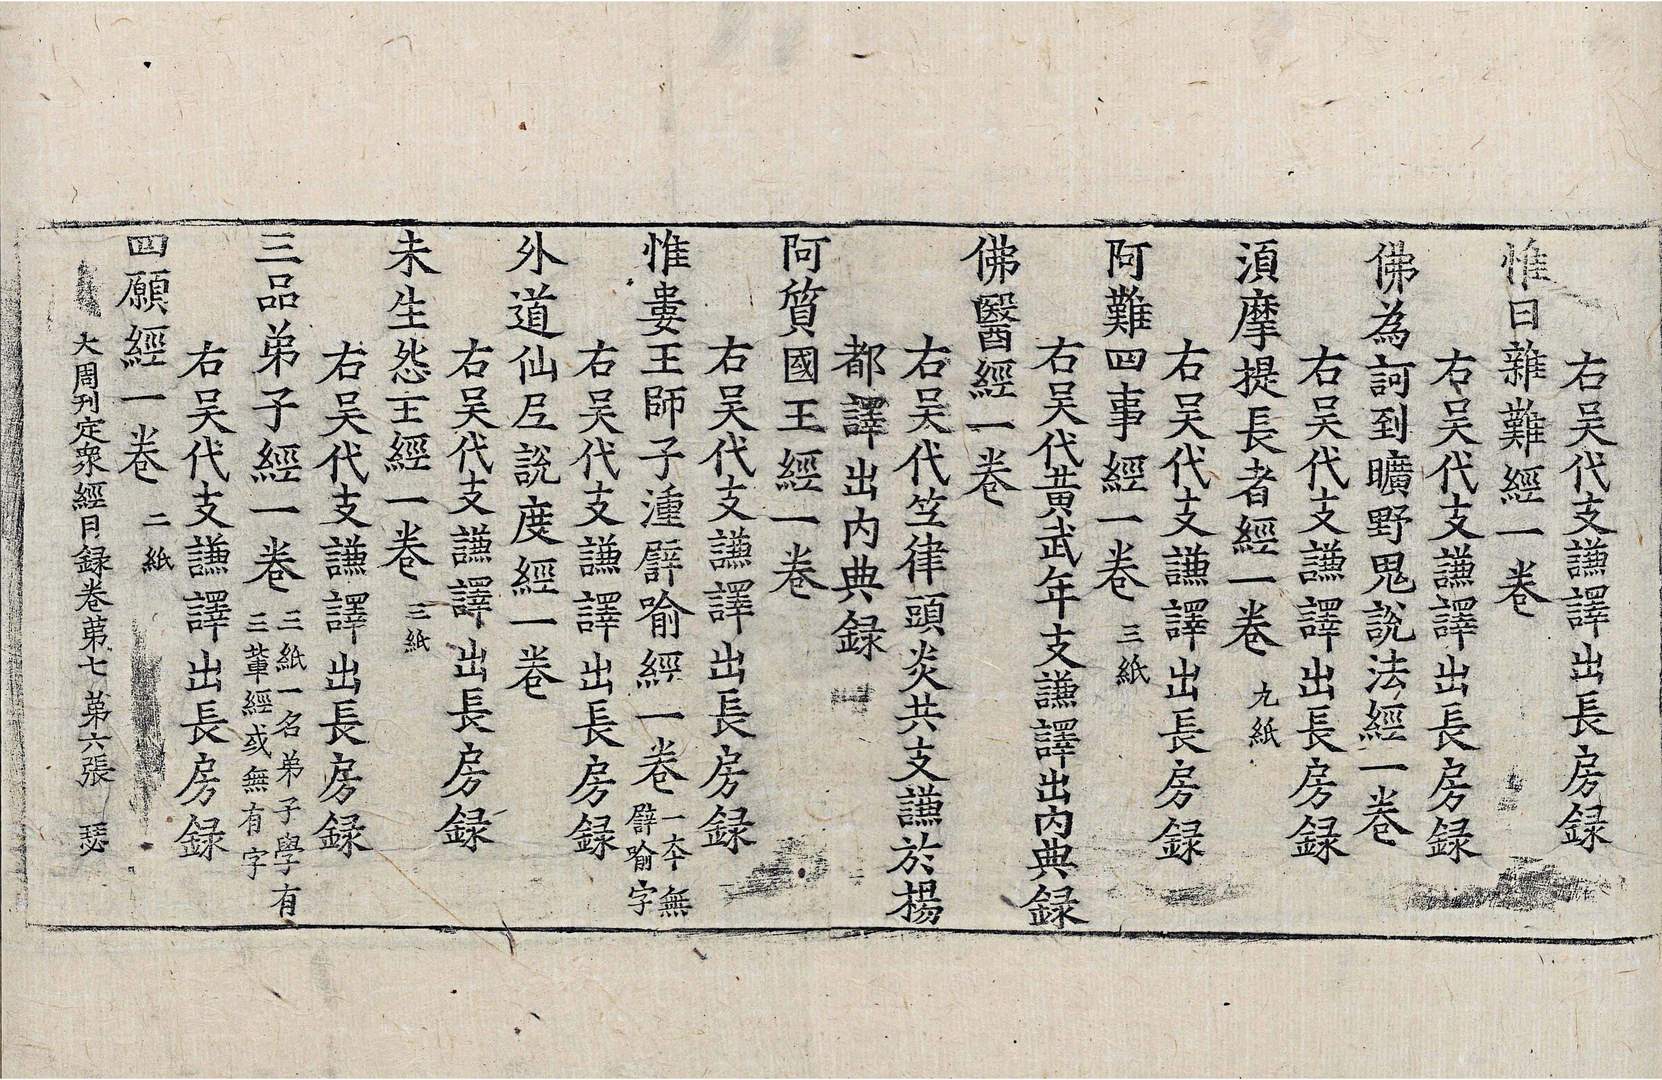 右吴代支謙譯出長房録
惟曰雜難經一卷
右吴代支謙譯出長房録
佛為訶到曠野鬼說法經一卷
右吴代支謙譯出長房録
湏摩提長者經一卷 九紙
右吴代支謙譯出長房録
阿難四事經一卷 三紙
右吴代黃武年支謙譯出內典録
佛醫經一卷
右吴代竺律頭炎共支謙於揚
都譯出內典録
阿質國王經一卷
右吴代支謙譯出長房録
惟婁王師子湩譬喻經一卷 一夲無
譬喻字
右吴代支謙譯出長房録
外道仙尼說度經一卷
右吴代支謙譯出長房録
未生怨王經一卷 三紙
右吴代支謙譯出長房録
三品弟子經一卷 三紙一名弟子學有
三輩經或無有字
右吴代支謙譯出長房録
四願經一卷 二紙
大周刊定衆經目録卷苐七 苐六張 瑟